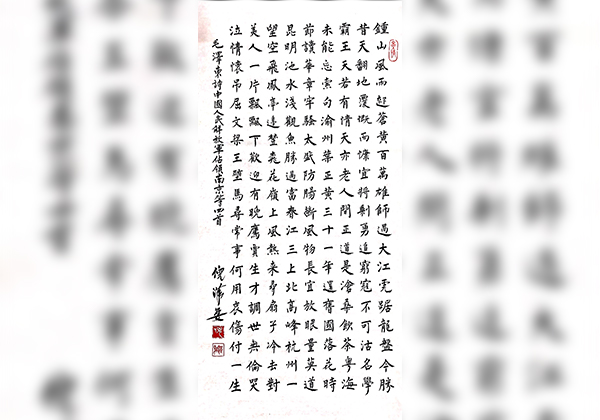 鍾山風雨起蒼黃百萬雄師過大江虎踞龍盤今勝
昔天翻地覆慨而慷宜將剩勇追窮寇不可沽名學
霸王天若有情天亦老人間正道是滄桑飲茶粵海
未能忘索句渝州葉正黃三十一年還舊國落花時
節讀華章牢騷太盛防腸斷風物長宜放眼量莫道
昆明池水淺觀魚勝過富春江三上北高峰杭州一
望空飛鳳亭邊樹桃花嶺上風熱來尋扇子冷去對
美人一片飄飄下歡迎有晚鷹賈生才調世無倫哭
泣情懷吊屈文梁王墮馬尋常事何用哀傷付一生
毛澤東詩中國人民解放軍佔領南京等四首